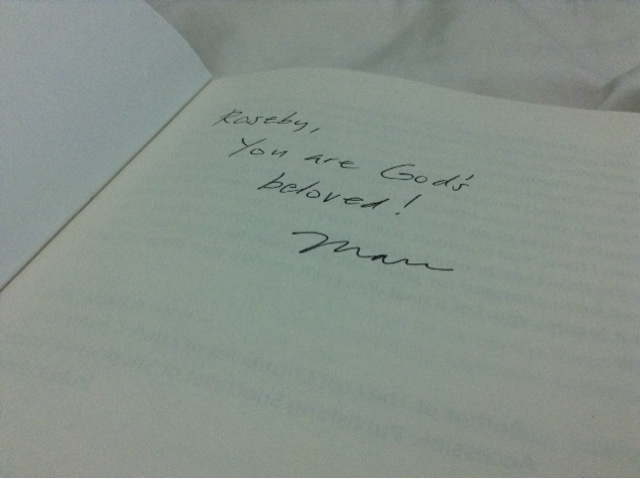 Roseby,
You are God's
beloved!